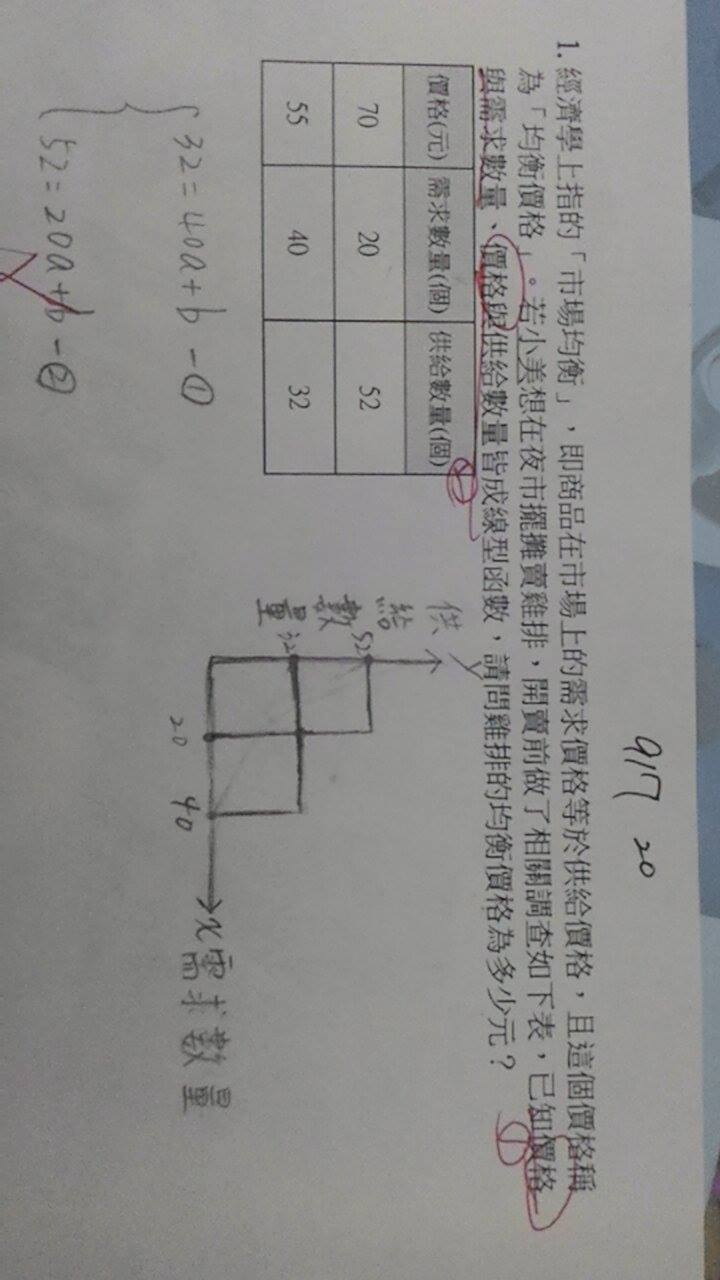 917 20
1. 經濟學上指的「市場均衡」,即商品在市場上的需求價格等於供給價格,且這個價格稱
為「均衡價格」。若小美想在夜市擺攤賣雞排,開賣前做了相關調查如下表,已知價格
與需求數量、價格與供給數量皆成線型函數,請問雞排的均衡價格為多少元?
①
②
價格(元) 需求數量(個) 供給數量(個)
70 20 52
55 40 32
y
供給數量
52
32
20 40
x 需求數量
32=40a+b-①
52=20a+b-②